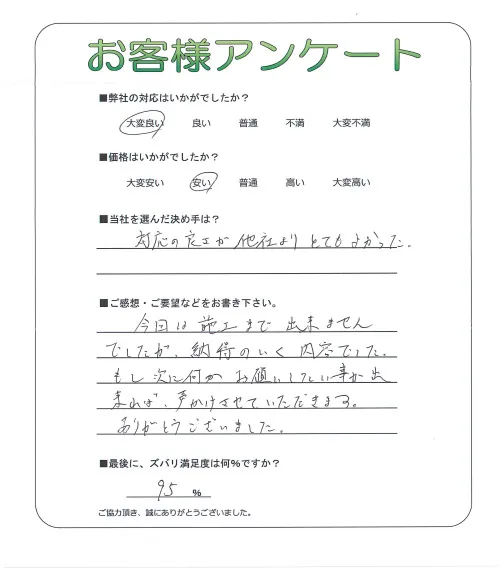 お客様アンケート
■弊社の対応はいかがでしたか？
大変良い 良い 普通 不満 大変不満
■価格はいかがでしたか？
大変安い 安い 普通 高い 大変高い
■当社を選んだ決め手は？
対応の良さが他社よりとてもよかった。
■ご感想・ご要望などをお書き下さい。
今回は施工まで出来ません
でしたが、納得のいく内容でした。
もし次に何かお願いしたい事が出
来れば、声かけさせていただきます。
ありがとうございました。
■最後に、ズバリ満足度は何%ですか？
95 %
ご協力頂き、誠にありがとうございました。